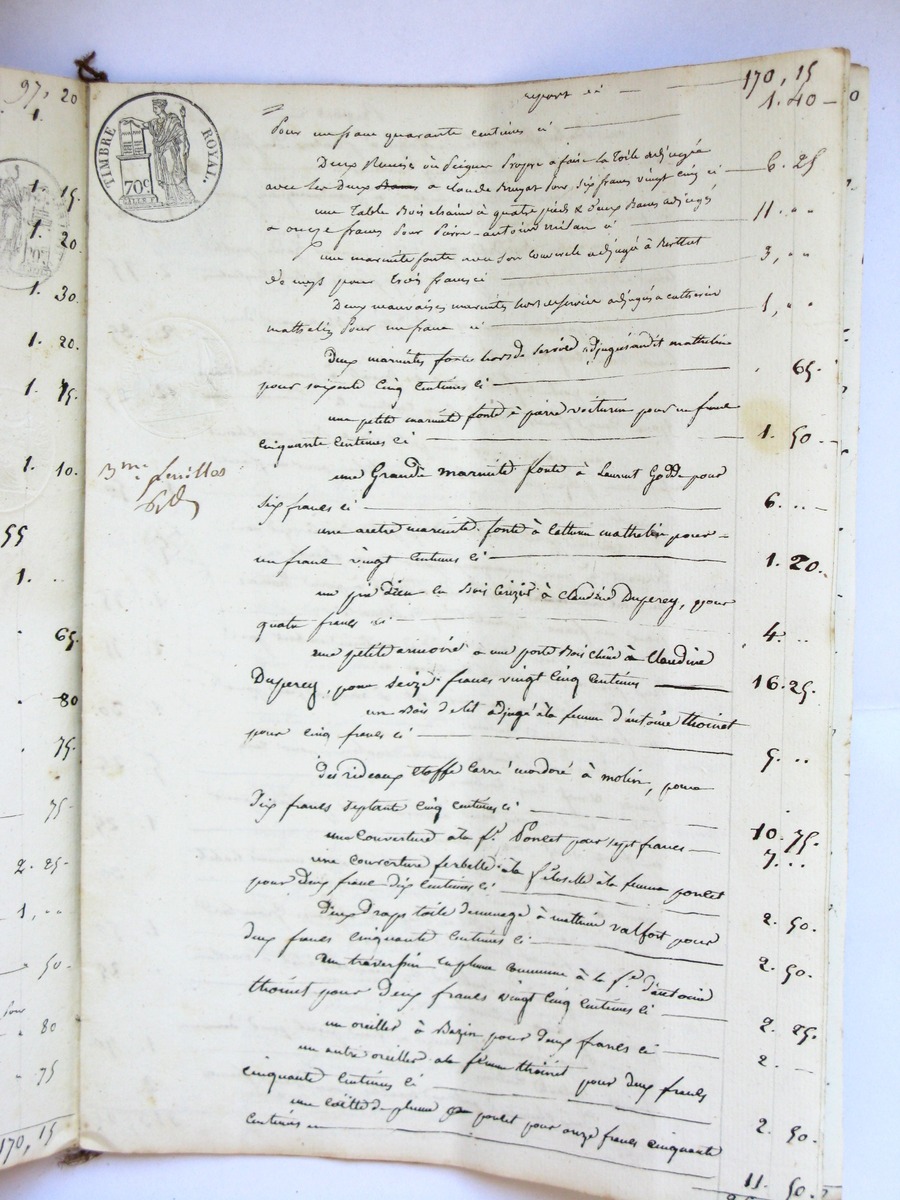 97. 20
1.
1. 15.
1. 20
1. 30.
1. 20.
1. 15.
1. 10.
55
1. ..
65.
80
75.
75
2. 25.
1, ..
50.
80
75
170, 15
TIMBRE ROYAL.
70c
report ci — 170, 15
Pour un franc quarante centimes ci — 1. 40
Deux à Peigne propre à faire la toile adjugés
avec les deux à claude pour six francs vingt cinq ci — 6. 25
une Table Bois chaine à quatre pieds & deux Bancs adjugés
a onze francs pour pierre-antoine ci — 11. ..
une marmite fonte avec son couvercle adjugée à
pour trois francs ci — 3, ..
Deux mauvaises marmites hors de service adjugés a catherin
mathelin pour un franc ci — 1, ..
Deux marmites fonte hors de service adjugés audit mathelin
pour soixante cinq centimes ci — . 65.
une petite marmite fonte à pierre voiturin pour un franc
cinquante centimes ci — 1. 50
3me feuillet
une Grande marmite fonte à Laurent Godde pour
six francs ci — 6. ..
une autre marmite fonte à catherin mathelin pour
un franc vingt centimes ci — 1. 20.
un prie dieu en Bois cerizier à claudine Duperey, pour
quatre francs ci — 4. ..
une petite armoire a une porte Bois chêne à Claudine
Duperey, pour seize francs vingt cinq centimes — 16. 25.
un Bois de lit adjugé à la femme d'antoine thoinet
pour cinq francs ci — 5. ..
des rideaux étoffe carré mordoré à molin, pour
dix francs septante cinq centimes ci — 10. 75.
une Couverture à la fe. Poncet pour sept francs — 7. ..
une couverture à la à la femme poncet
pour Deux francs dix centimes ci — 2. 50.
deux Draps toile de menage à mathieu valfort pour
deux francs cinquante centimes ci — 2. 50.
un traversin en plume commune à la fe. d'antoine
thoinet pour Deux francs vingt cinq centimes ci — 2. 25.
un oreiller à Bazin pour deux francs ci — 2. —
un autre oreiller a la femme thoinet pour deux francs
cinquante centimes ci — 2. 50.
une coëtte de plume poncet pour onze francs cinquante
centimes — 11. 50.